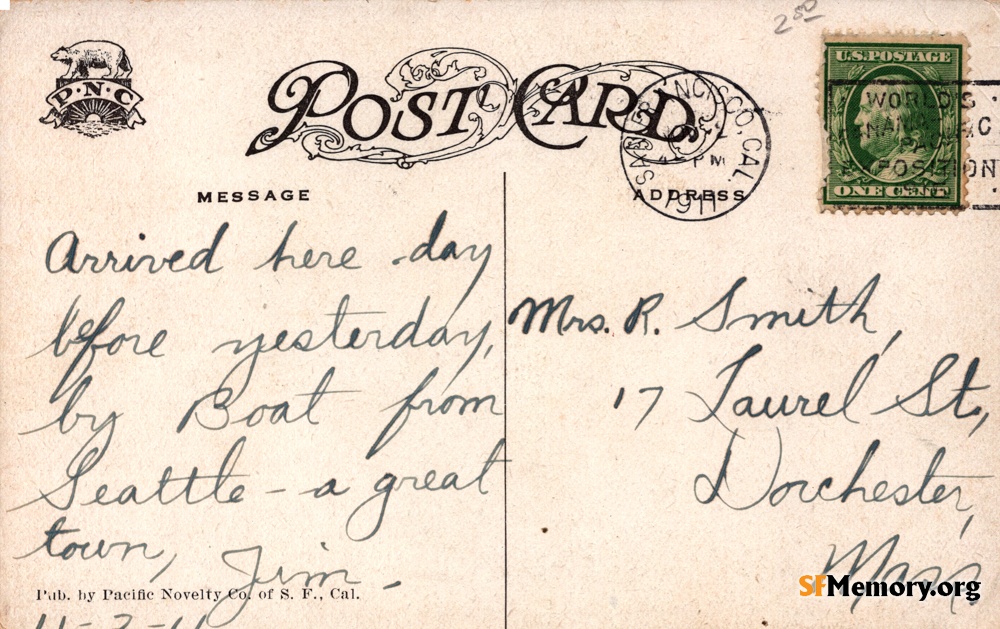 2 50
P·N·C
POST CARD
SAN FRANCISCO, CAL.
4 - PM
1911
U.S. POSTAGE
ONE CENT
WORLD'S
PANAMA
PAC
EXPOSITION
MESSAGE
ADDRESS
Arrived here day
before yesterday,
by Boat from
Seattle - a great
town,
Jim -
Pub. by Pacific Novelty Co. of S. F., Cal.
Mrs. R. Smith,
17 Laurel St.,
Dorchester,
Mass.
SFMemory.org